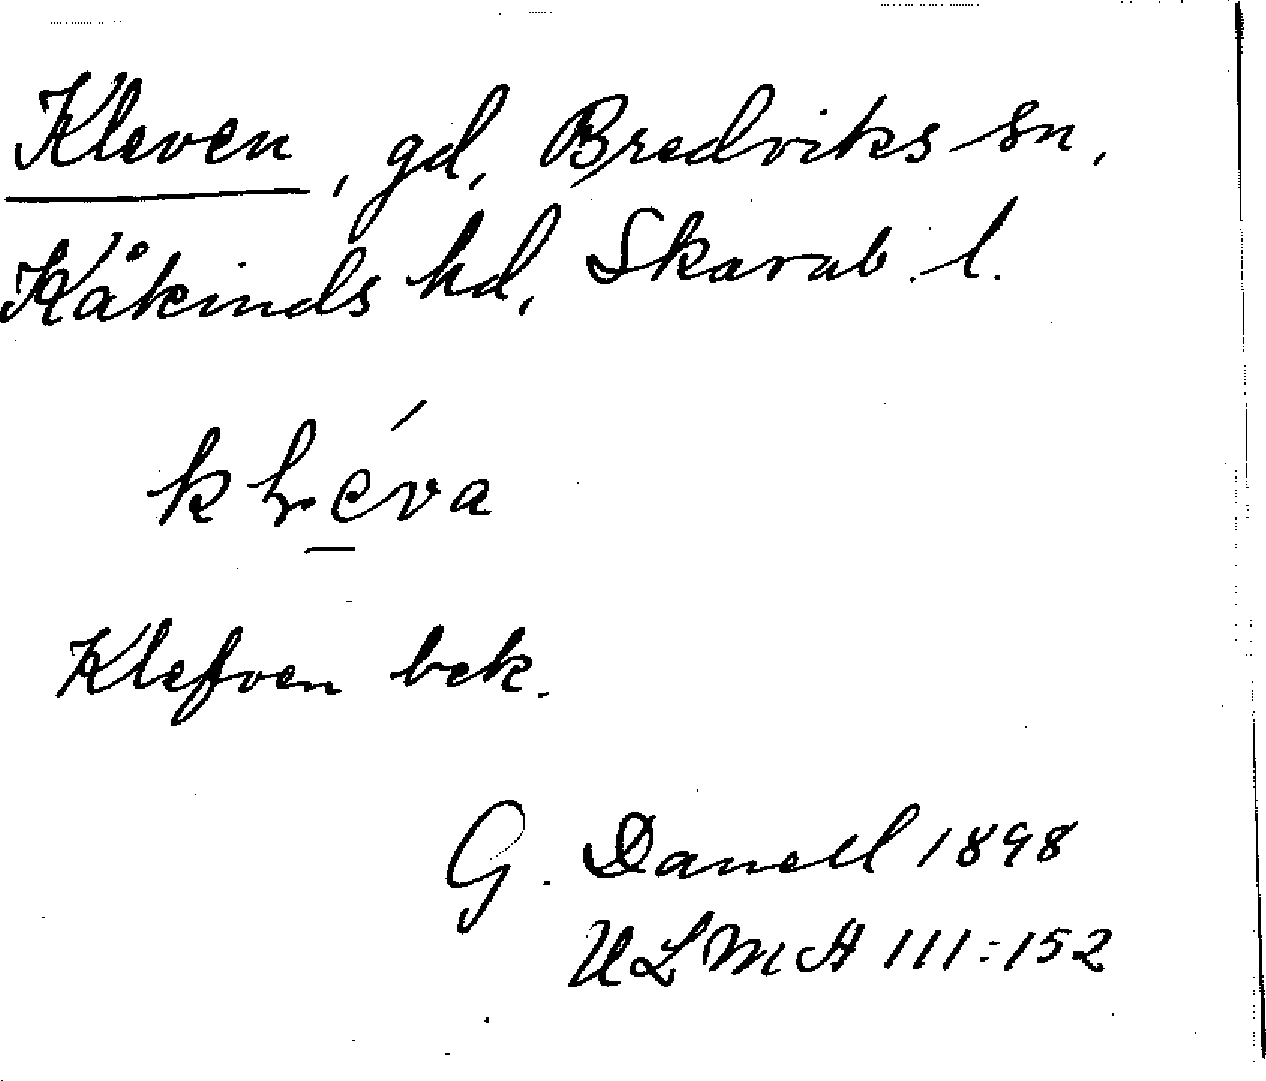 Kleven, gd, Bredviks sn,
Kåkinds hd, Skarab. l.
kléva
Klefven bek.
G. Danell 1898
ULMA 111:152